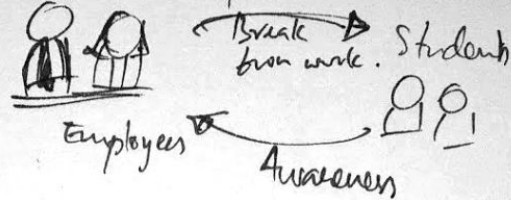 Break
from work.
Students
Employees
Awareness